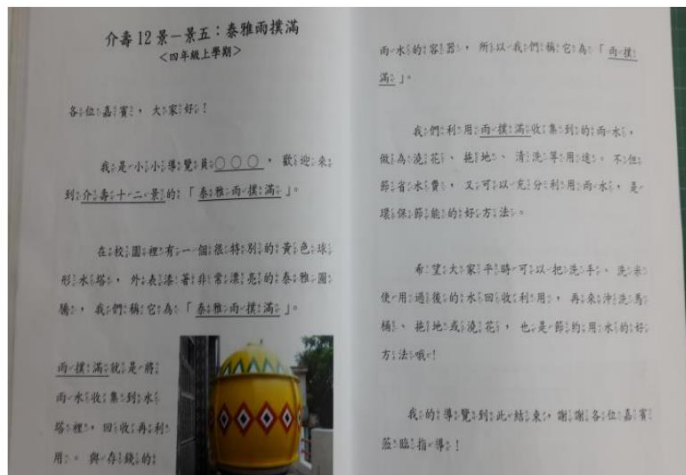 介壽12景－景五：泰雅雨撲滿
＜四年級上學期＞
各位嘉賓，大家好！
我是小小導覽員○○○，歡迎來
到介壽十二景的「泰雅雨撲滿」。
在校園裡有一個很特別的黃色球
形水塔，外表漆著非常漂亮的泰雅圖
騰，我們稱它為「泰雅雨撲滿」。
雨撲滿就是將
雨水收集到水
塔裡，回收再利
用。與存錢的
雨水的容器，所以我們稱它為「雨撲
滿」。
我們利用雨撲滿收集到的雨水，
做為澆花、拖地、清洗等用途。不但
節省水費，又可以充分利用雨水，是
環保節能的好方法。
希望大家平時可以把洗手、洗米
使用過後的水回收利用，再來沖洗馬
桶、拖地或澆花，也是節約用水的好
方法哦！
我的導覽到此結束，謝謝各位嘉賓
蒞臨指導！